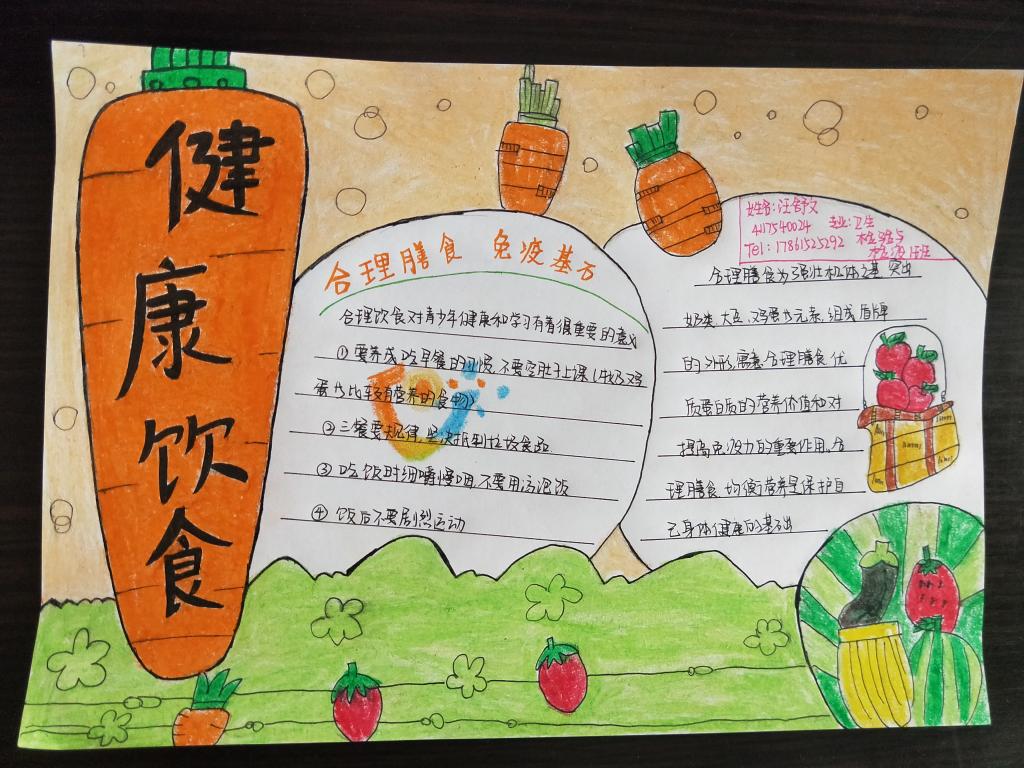 健康饮食
合理膳食 免疫基石
合理饮食对青少年健康和学习有着很重要的意义
①要养成吃早餐的习惯,不要空肚子上课(牛奶、鸡
蛋等比较有营养的食物)
②三餐要规律,坚决抵制垃圾食品
③吃饭时细嚼慢咽,不要用汤泡饭
④饭后不要剧烈运动
姓名:汪舒文
417540024 专业:卫生
Tel:17861525292 检验与
检疫1班
合理膳食为强壮机体之基 突出
奶类、大豆、鸡蛋等元素,组成盾牌
的外形,寓意合理膳食、优
质蛋白质的营养价值和对
提高免疫力的重要作用,合
理膳食 均衡营养是保护自
己身体健康的基础